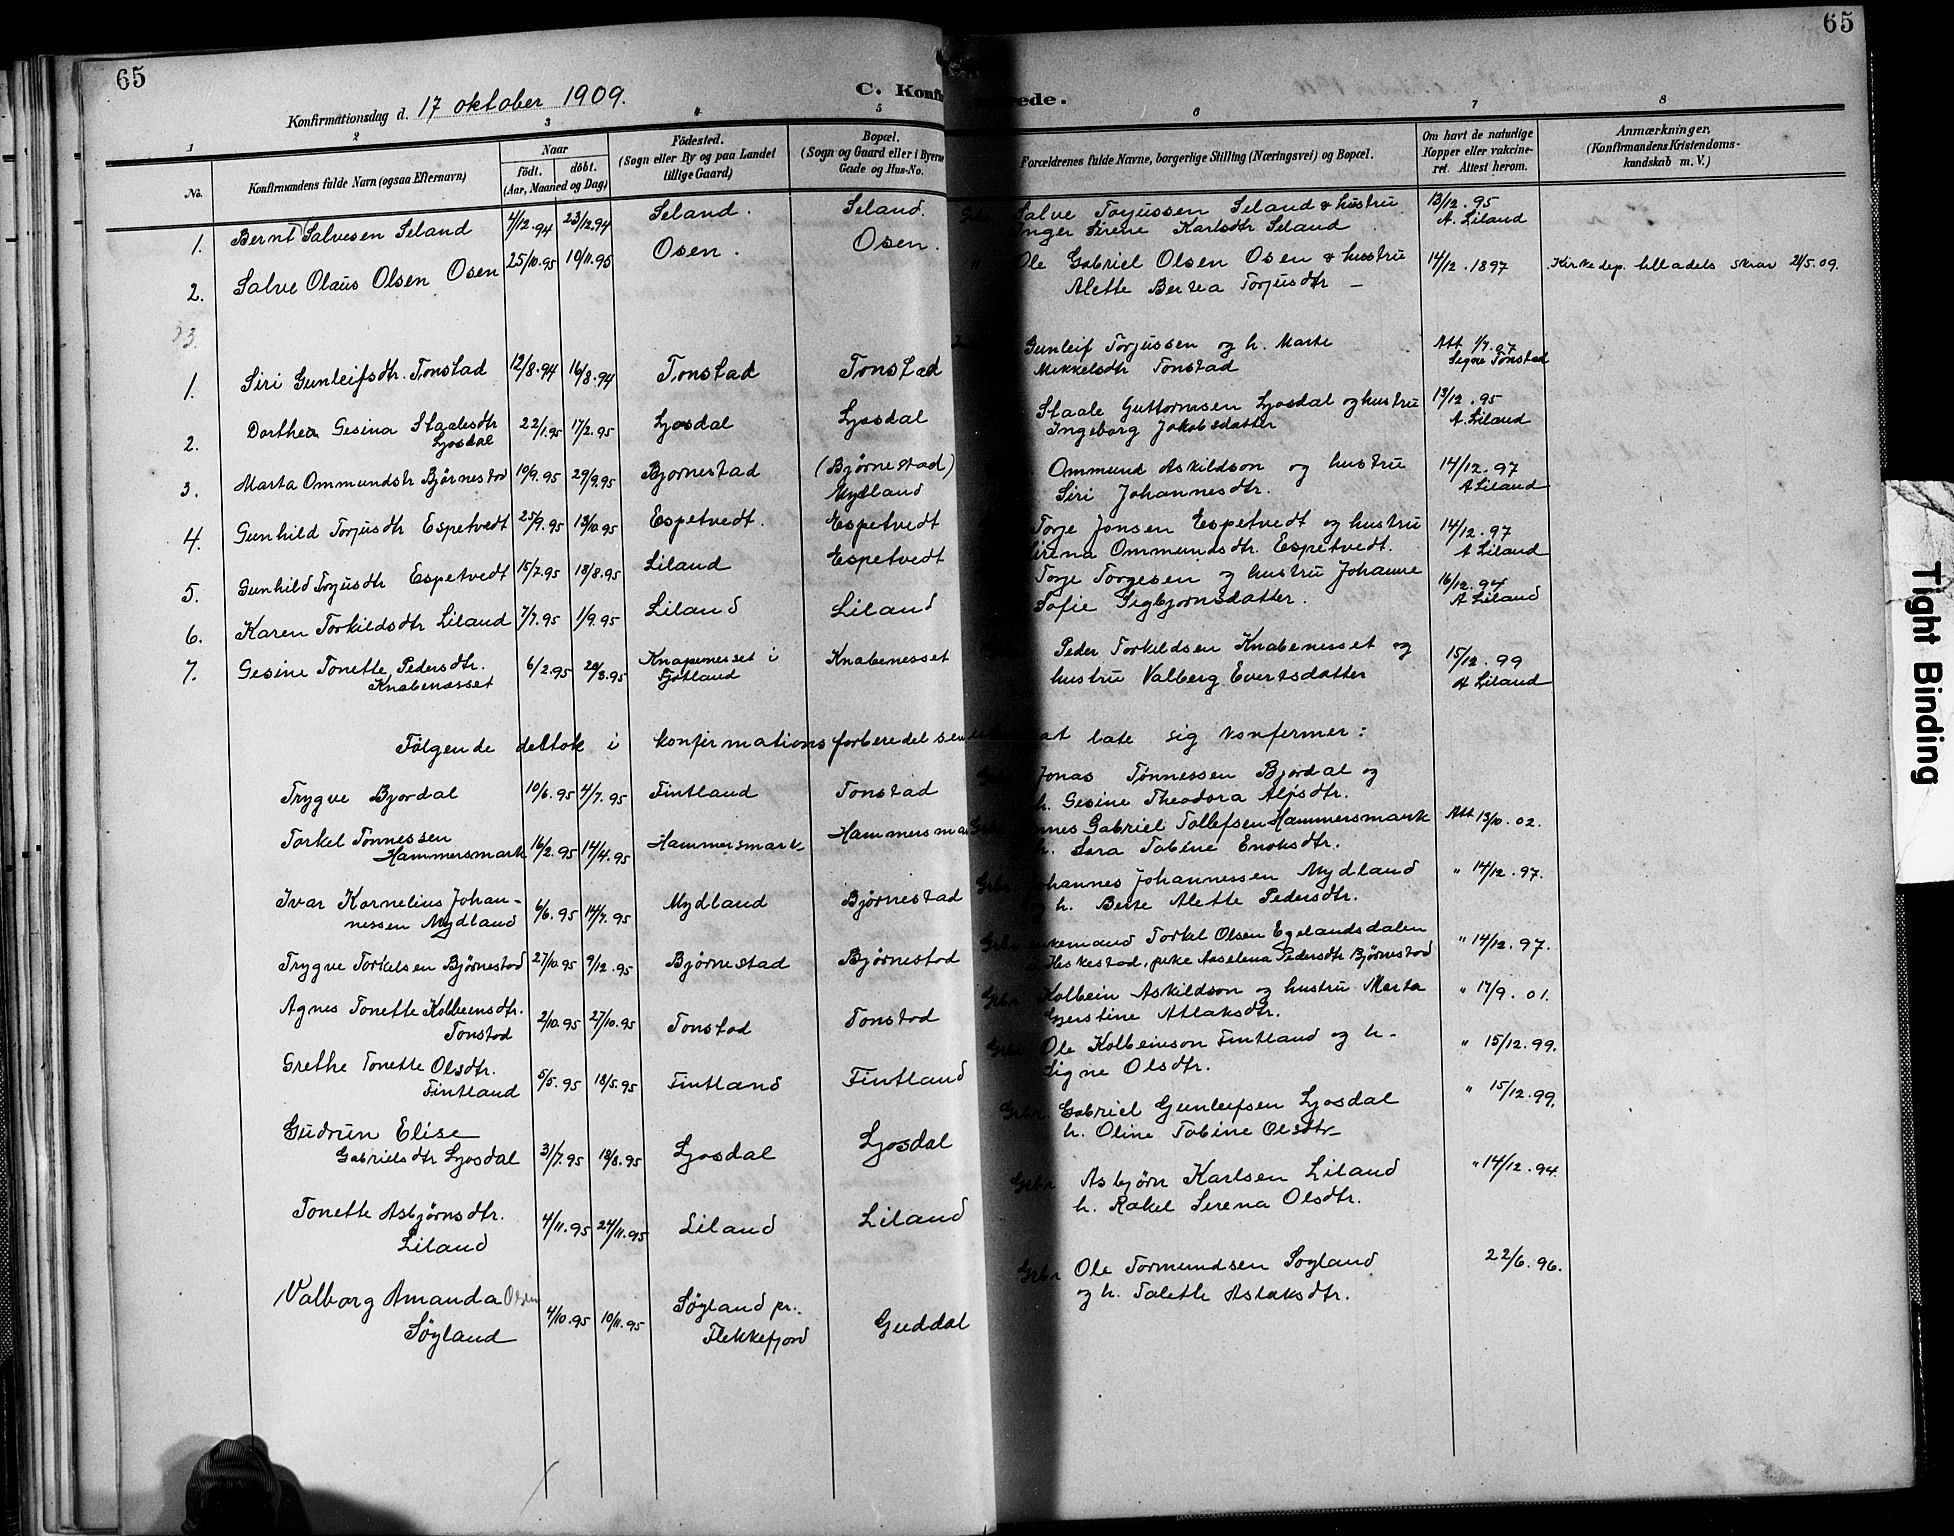 65
65
Konfirmationsdag d. 17 oktober 1909.
C. Konfir
rede.
1 2 3 4 5 6 7 8
No.
Konfirmandens fulde Navn (ogsaa Efternavn)
Naar
født. døbt.
(Aar, Maaned og Dag)
Fødested.
(Sogn eller By og paa Landet
tillige Gaard)
Bopæl.
(Sogn og Gaard eller i Byerne
Gade og Hus-No.
Forældrenes fulde Navne, borgerlige Stilling (Næringsvei) og Bopæl.
Om havt de naturlige
Kopper eller vakcine-
ret. Attest herom.
Anmærkninger.
(Konfirmandens Kristendoms-
kundskab m. V.)
1. Bernt Salvesen Seland 4/12.94 23/12.94 Seland. Seland. Salve Torjussen Seland & hustru 13/12.95
Inger Sirene Karlsdtr Seland A. Liland
2. Salve Olaus Olsen Osen 25/10.95 10/11.95 Osen. Osen. Ole Gabriel Olsen Osen & hustru 14/12.1897 Kirkedep. tilladels skriv 21/5.09.
Alette Bertea Torjusdtr —
3.
1. Siri Gunleifsdtr. Tonstad 12/8.94 16/8.94 Tonstad Tonstad Gunleif Torjussen og h. Marte Att 1/7.07
Mikkelsdtr Tonstad Signe Tonstad
2. Dorthea Gesina Staalesdtr 22/1.95 17/2.95 Ljosdal Ljosdal Staale Guttormsen Ljosdal og hustru 13/12.95
Ljosdal Ingeborg Jakobsdatter A. Liland
3. Marta Ommundsdtr Bjørnestad 10/9.95 29/9.95 Bjornestad (Bjørnestad) Ommund Askildson og hustru 14/12.97
Mydland Siri Johannesdtr. A Liland
4. Gunhild Torjusdtr Espetvedt 25/9.95 13/10.95 Espetvedt. Espetvedt Torje Jonsen Espetvedt og hustru 14/12.97
Sirena Ommundsdtr. Espetvedt. A Liland
5. Gunhild Torjusdtr Espetvedt 15/7.95 18/8.95 Liland Espetvedt Torje Torgesen og hustru Johanne 16/12.94
6. Karen Torkildsdtr Liland 7/7.95 1/9.95 Liland Liland Sofie Sigbjornsdatter. A Liland
7. Gesine Tonette Pedersdtr. 6/2.95 20/3.95 Knapenesset i Knabenesset Peder Torkildsen Knabenesset og 15/12.99
Knabenesset Fjotland hustru Valberg Evertsdatter A Liland
Følgende deltok i konfirmationsforberedelsen at late sig konfermer:
Trygve Bjordal 10/6.95 4/7.95 Fintland Tonstad Jonas Tønnessen Bjordal og
h. Gesine Theodora Alfsdtr.
Torkel Tønnessen 16/2.95 14/4.95 Hammersmark Hammersma Gabriel Tollefsen Hammersmark Att 13/10.02.
Hammersmark h. Sara Tobine Enoksdtr.
Ivar Kornelius Johan- 6/6.95 14/7.95 Mydland Bjørnestad Johannes Johannessen Mydland " 14/12.97.
nessen Mydland og h. Berte Alette Pedersdtr.
Trygve Torkelsen Bjørnestad 27/10.95 9/12.95 Bjørnestad Bjørnestad Grbr. enkemand Torkel Olsen Egelandsdalen " 14/12.97.
Heskestad, pike Aaselena Pedersdtr Bjørnestad
Agnes Tonette Kolbeinsdtr. 2/10.95 27/10.95 Tonstad Tonstad Grbr Kolbein Askildson og hustru Marta " 17/9.01.
Tonstad Gjerstine Atlaksdtr.
Grethe Tonette Olsdtr. 5/5.95 18/5.95 Fintland Fintland Ole Kolbeinson Fintland og h. " 15/12.99.
Fintland Signe Olsdtr.
Gudrun Elise 31/7.95 18/8.95 Ljosdal Ljosdal Grbr. Gabriel Gunleifsen Ljosdal " 15/12.99.
Gabrielsdtr Ljosdal h. Oline Tobine Olsdtr
Tonette Asbjørnsdtr. 4/11.95 24/11.95 Liland Liland Grbr Asbjørn Karlsen Liland " 14/12.94.
Liland h. Rakel Serena Olsdtr.
Valborg Amanda Olsen 4/10.95 10/11.95 Søyland pr. Guddal Grbr Ole Tormundsen Søyland 22/6.96.
Søyland Flekkefjord og h. Talette Aslaksdtr.
Tight Binding